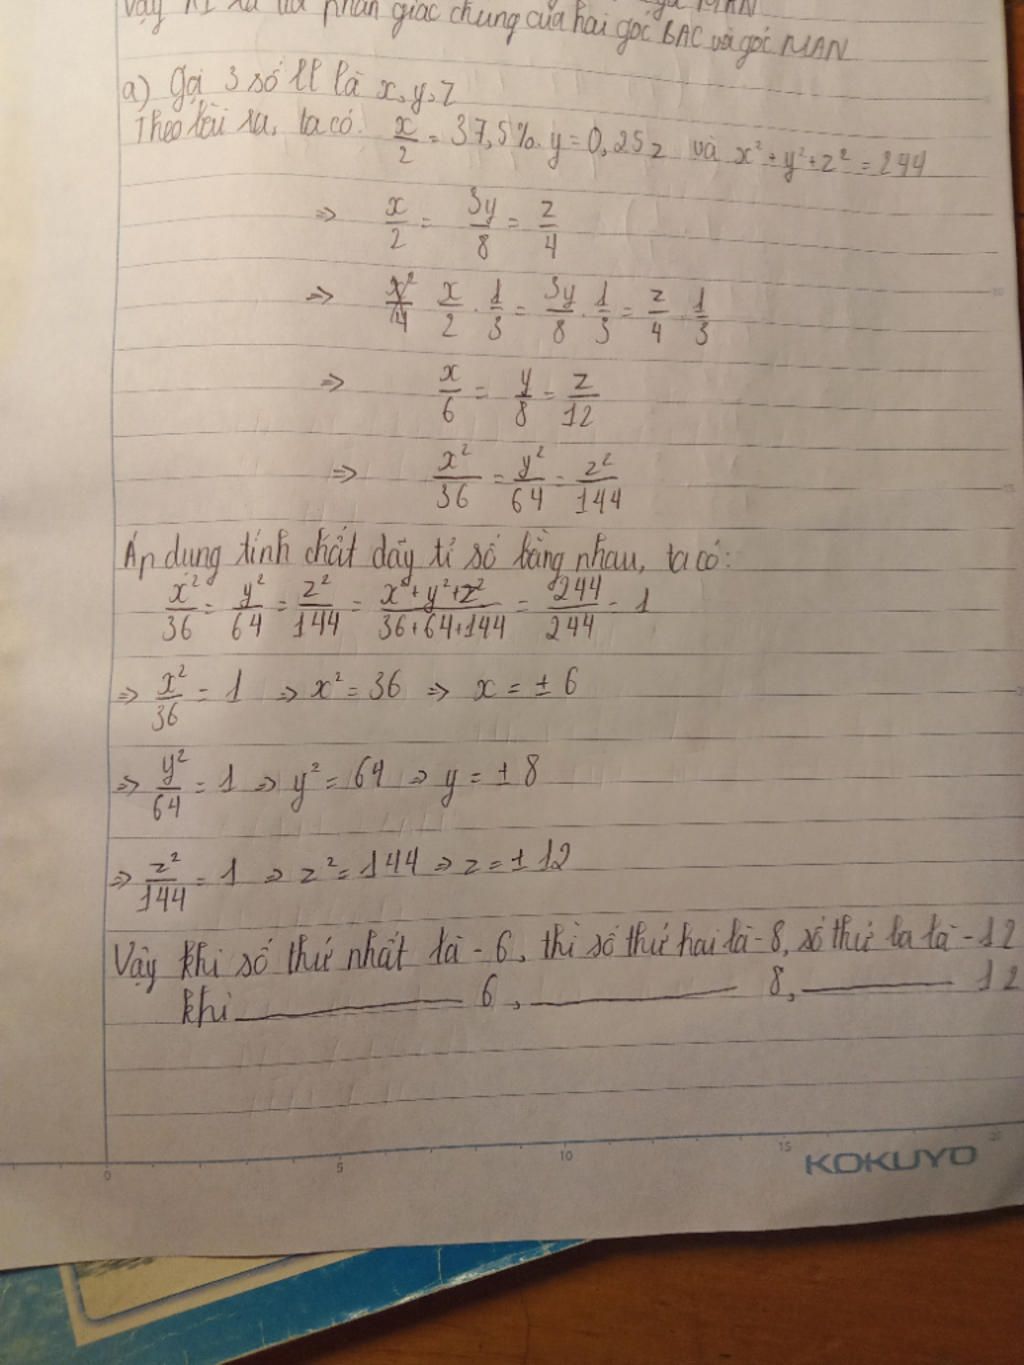 Vậy AI là tia phân giác chung của hai góc BAC và góc MAN
a) Gọi 3 số ll là x, y, z
Theo bài ra, ta có: x/2 = 37,5%.y = 0,25z và x² + y² + z² = 244
=> x/2 = 3y/8 = z/4
=> x/2 . 1/3 = 3y/8 . 1/3 = z/4 . 1/3
=> x/6 = y/8 = z/12
=> x²/36 = y²/64 = z²/144
Áp dụng tính chất dãy tỉ số bằng nhau, ta có:
x²/36 = y²/64 = z²/144 = x²+y²+z²/36+64+144 = 244/244 = 1
=> x²/36 = 1 => x² = 36 => x = ± 6
=> y²/64 = 1 => y² = 64 => y = ± 8
=> z²/144 = 1 => z² = 144 => z = ± 12
Vậy khi số thứ nhất là -6, thì số thứ hai là -8, số thứ ba là -12
khi 6, 8, 12
0 5 10 15 20
KOKUYO